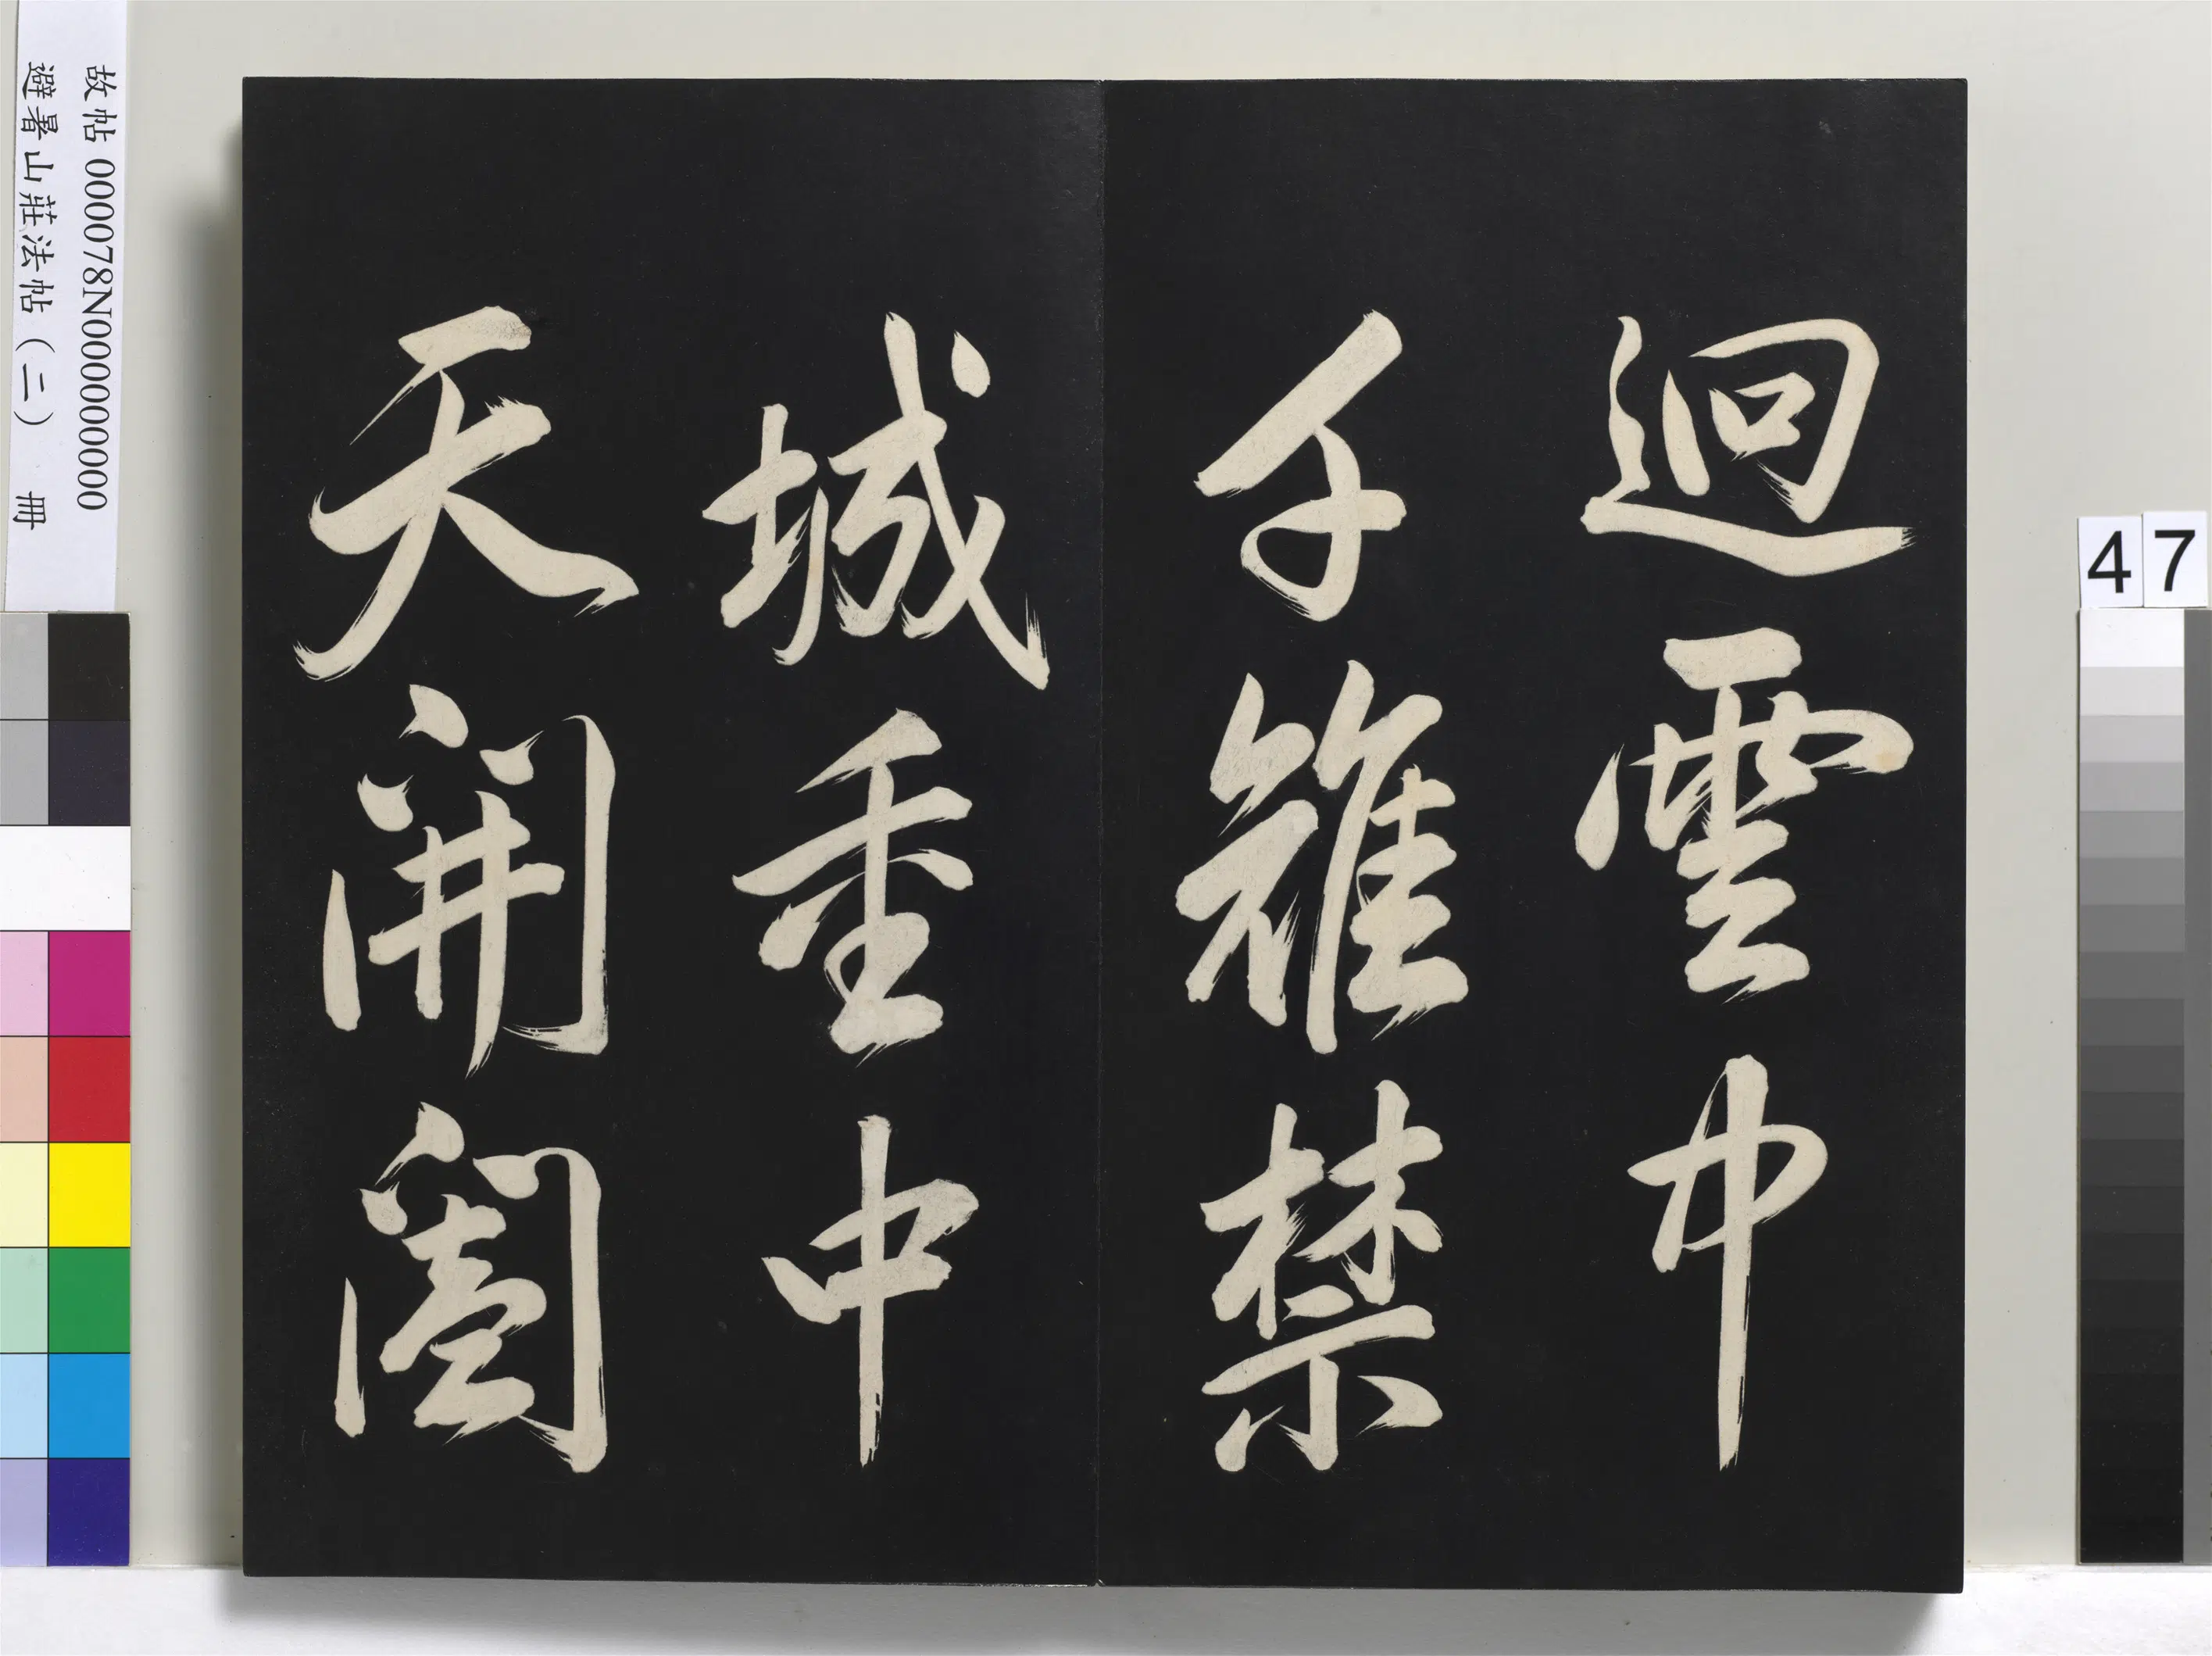 迴雲中
千雉禁
城重中
天開闔
故帖 000078N000000000
避暑山莊法帖（二） 冊
47